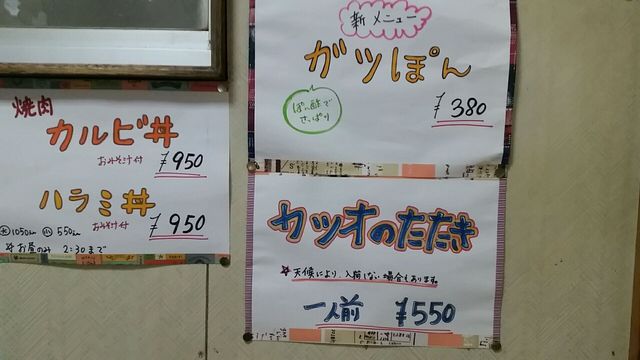 焼肉
カルビ丼
おみそ汁付 ¥950
ハラミ丼
おみそ汁付 ¥950
大 1050yen 小 550yen
※お昼のみ 2:30まで
新メニュー
ガツぽん
ぽん酢で
さっぱり
¥380
カツオのたたき
★天候により、入荷しない場合もあります。
一人前 ¥550